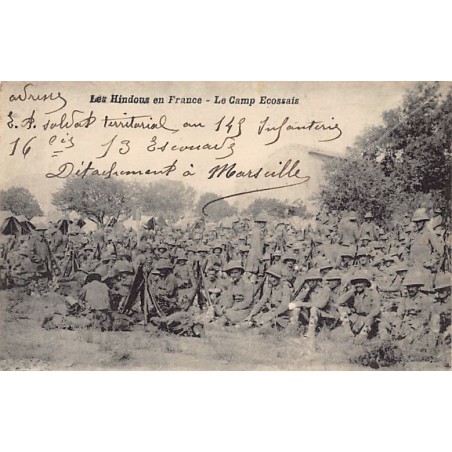 adresse
Les Hindous en France - Le Camp Ecossais
E. R. soldat territorial au 145 Infanterie
16 cie 13 Escouade
Détachement à Marseille